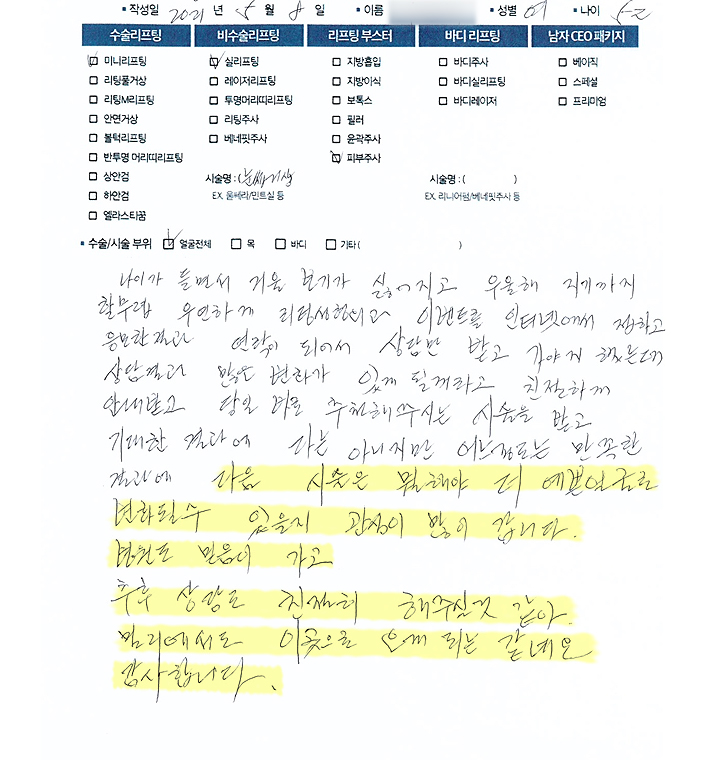 ▪ 작성일 2021 년 5 월 8 일 ▪ 이름 ▪ 성별 여 ▪ 나이 52
수술리프팅 비수술리프팅 리프팅 부스터 바디 리프팅 남자 CEO 패키지
미니리프팅 실리프팅 지방흡입 바디주사 베이직
리팅풀거상 레이저리프팅 지방이식 바디실리프팅 스페셜
리팅M리프팅 투명머리띠리프팅 보톡스 바디레이저 프리미엄
안면거상 리팅주사 필러
볼턱리프팅 베네핏주사 윤곽주사
반투명 머리띠리프팅 피부주사
상안검 시술명 : (눈썹거상 시술명 : ( )
하안검 EX. 울쎄라/민트실 등 EX. 리니어펌/베네핏주사 등
엘라스티꿈
▪ 수술/시술 부위 얼굴전체 목 바디 기타 ( )
나이가 들면서 거울 보기가 싫어지고 우울해 지기까지
할무렵 우연하게 리팅성형외과 이벤트를 인터넷에서 접하고
응모한결과 연락이 되어서 상담만 받고 가야지 했는데
상담결과 많은 변화가 있게 될꺼라고 친절하게
안내받고 당일 바로 추천해주시는 시술을 받고
기대한 결과에 다는 아니지만 어느정도는 만족한
결과에 다음 시술은 뭘해야 더 예쁜얼굴로
변화될수 있을지 관심이 많이 갑니다.
병원도 믿음이 가고
추후 상담도 친절히 해주실것 같아
멀리에서도 이곳으로 오게 되는 같네요
감사합니다.